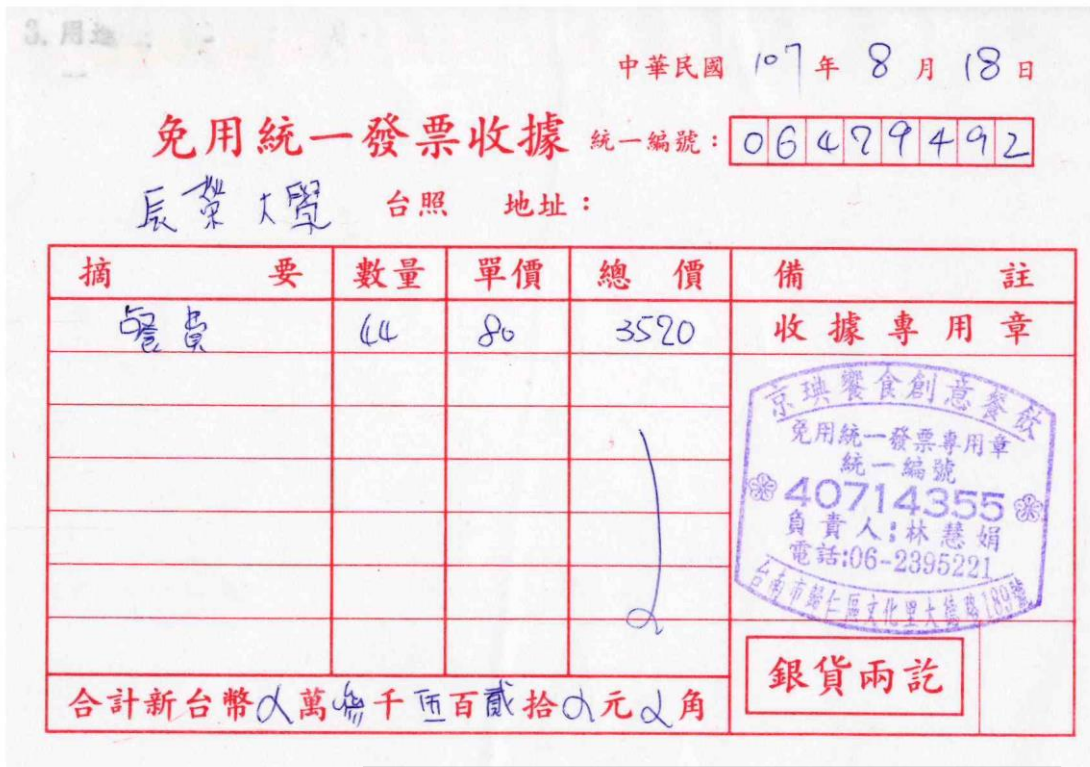 3. 用途
中華民國 107 年 8 月 18 日
免用統一發票收據 統一編號: 06479492
長榮大學 台照 地址:
摘要 數量 單價 總價 備註
餐費 44 80 3520 收據專用章
京璵饗食創意餐飲
免用統一發票專用章
統一編號
40714355
負責人:林慧娟
電話:06-2395221
台南市歸仁區文化里大德路189號
銀貨兩訖
合計新台幣 萬參千伍百貳拾 元 角